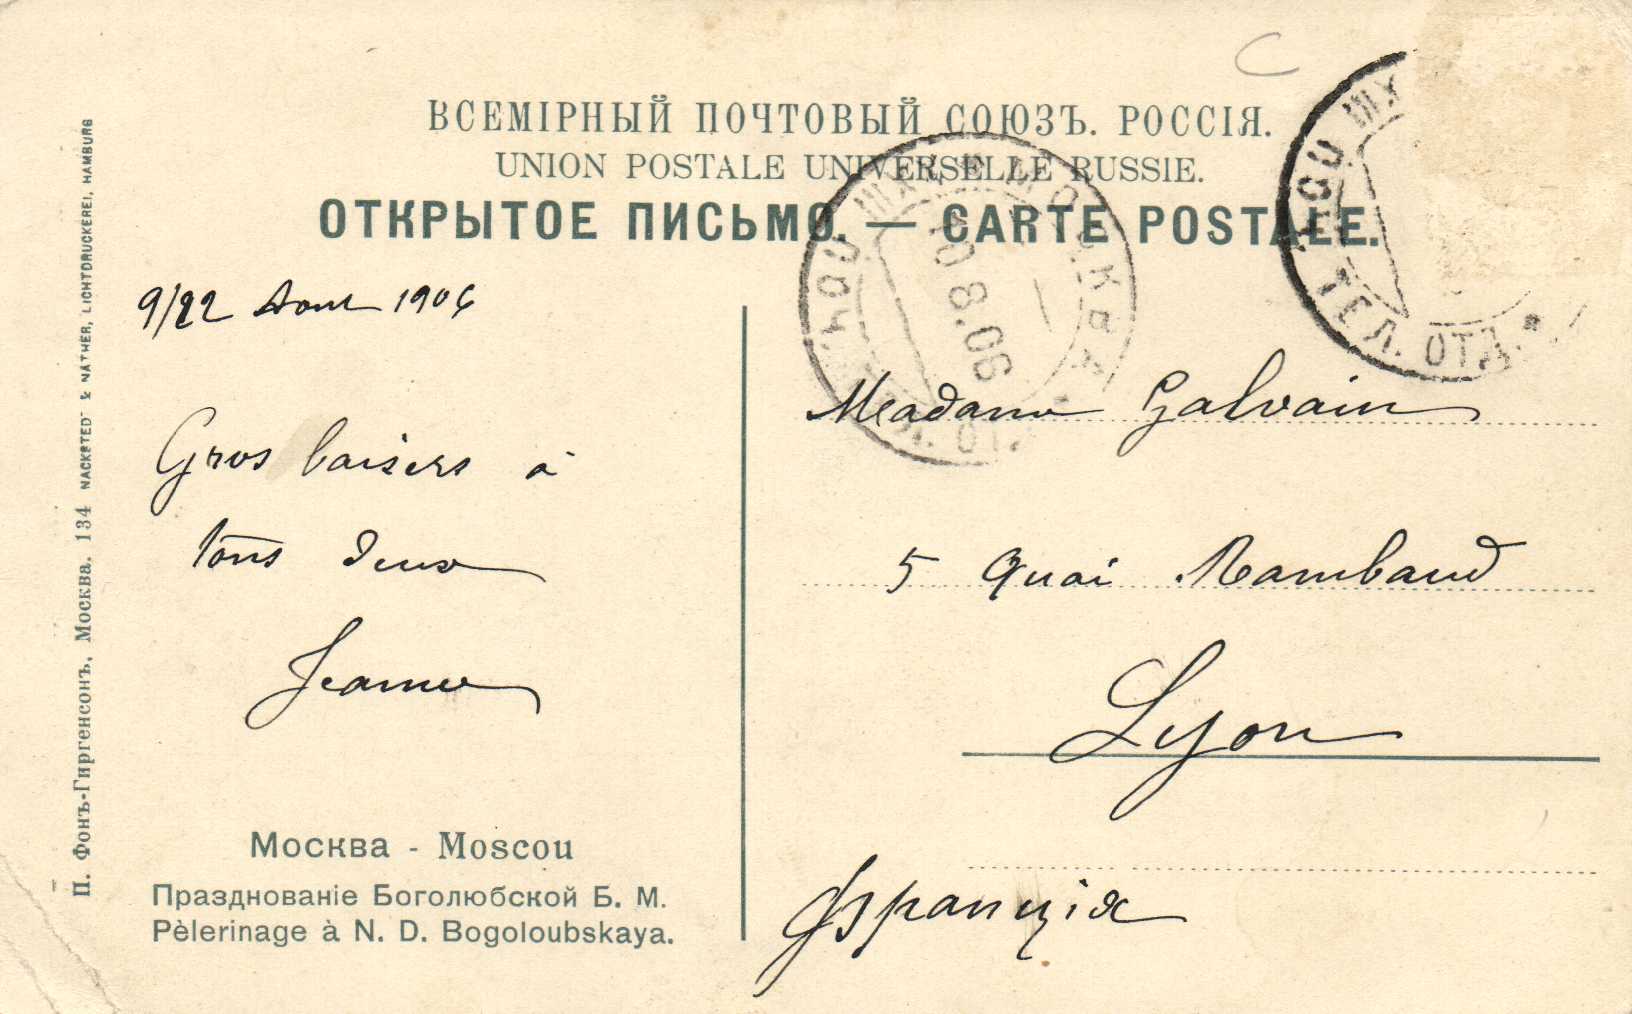 ВСЕМІРНЫЙ ПОЧТОВЫЙ СОЮЗЪ. РОССІЯ.
UNION POSTALE UNIVERSELLE RUSSIE.
ОТКРЫТОЕ ПИСЬМО. — CARTE POSTALE.
МОСКВА
10 8.06
ТЕЛ. ОТД.
9/22 Aout 1906
Gros baisers à
tous deux
Jeanne
Madame Galvain
5 Quai Rambaud
Lyon
Франція
Москва - Moscou
Празднованіе Боголюбской Б. М.
Pèlerinage à N. D. Bogoloubskaya.
П. Фонъ-Гиргенсонъ, Москва. 134 NACKE & NATHER, LICHTDRUCKEREI, HAMBURG